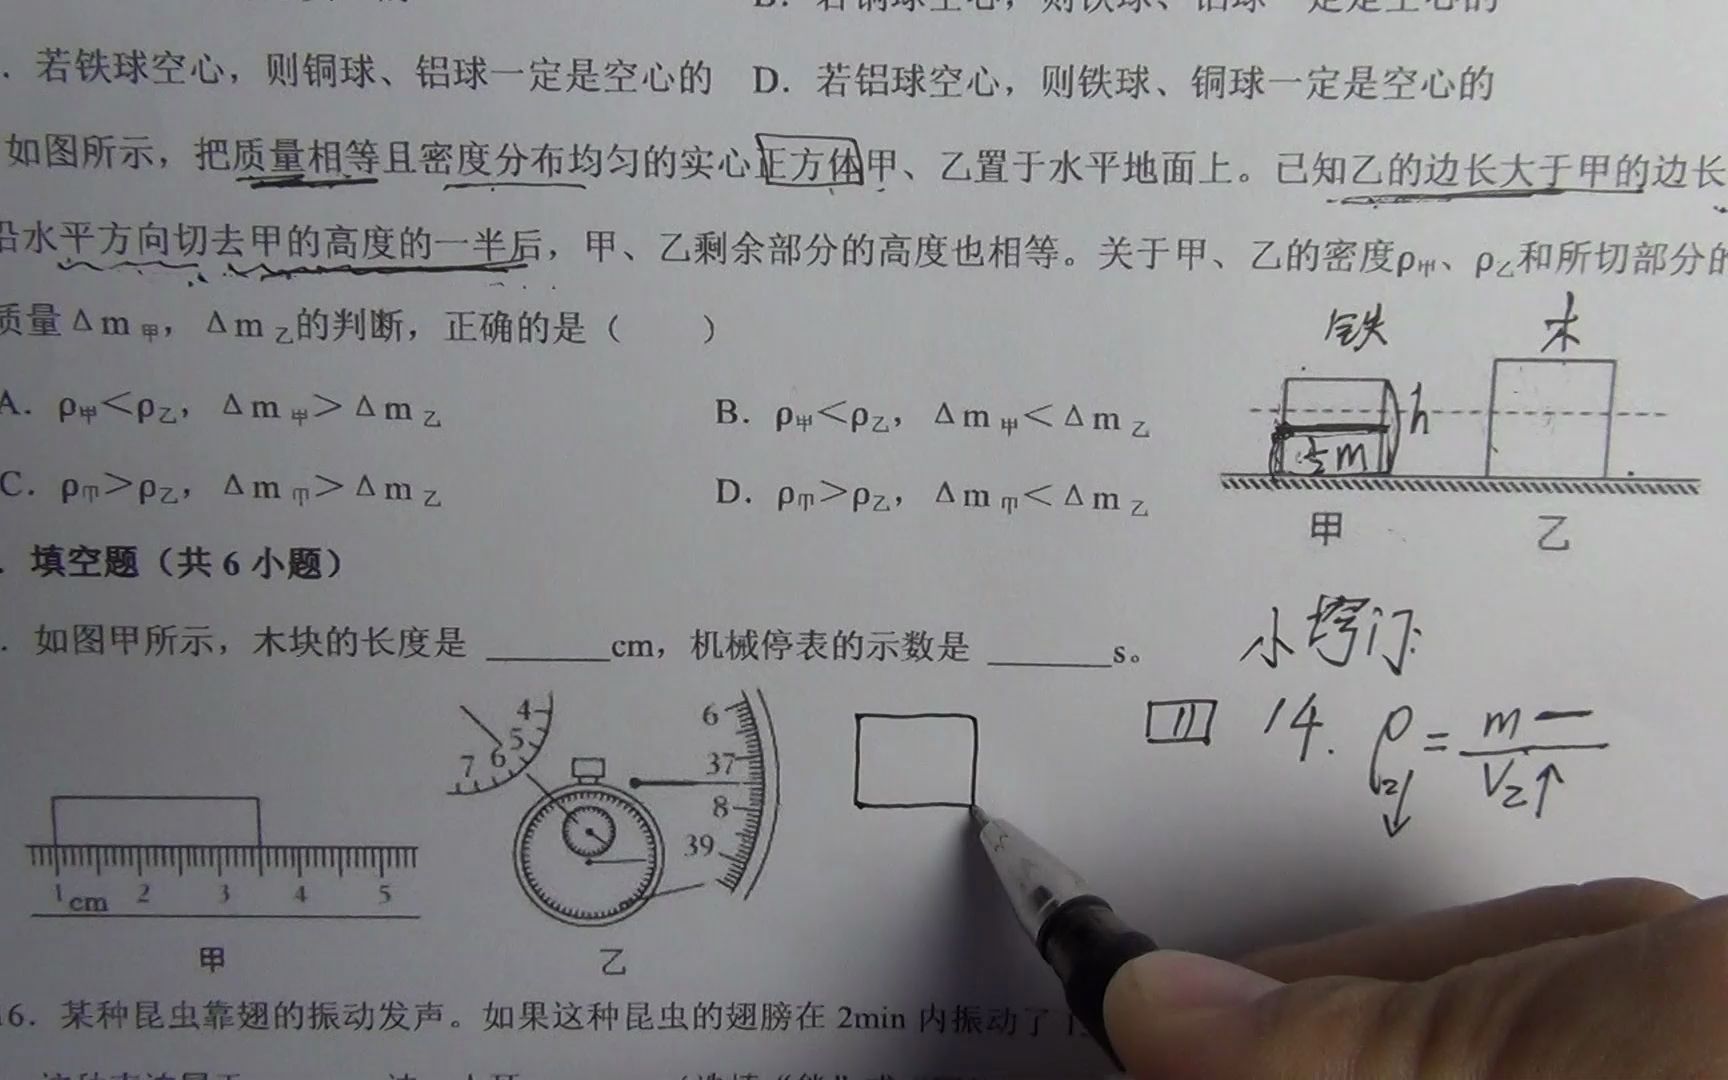 若铁球空心，则铜球、铝球一定是空心的 D．若铝球空心，则铁球、铜球一定是空心的
如图所示，把质量相等且密度分布均匀的实心正方体甲、乙置于水平地面上。已知乙的边长大于甲的边长
沿水平方向切去甲的高度的一半后，甲、乙剩余部分的高度也相等。关于甲、乙的密度ρ甲、ρ乙和所切部分的
质量Δm甲，Δm乙的判断，正确的是（　　）
铁 木
A．ρ甲＜ρ乙，Δm甲＞Δm乙
B．ρ甲＜ρ乙，Δm甲＜Δm乙
h
½m
C．ρ甲＞ρ乙，Δm甲＞Δm乙
D．ρ甲＞ρ乙，Δm甲＜Δm乙
甲 乙
填空题（共 6 小题）
．如图甲所示，木块的长度是 ______cm，机械停表的示数是 ______s。
小窍门:
14. ρ乙↓ = m一 / V乙↑
4 5 6 7
6 37 8 39
1 2 3 4 5
cm
甲 乙
16．某种昆虫靠翅的振动发声。如果这种昆虫的翅膀在 2min 内振动了